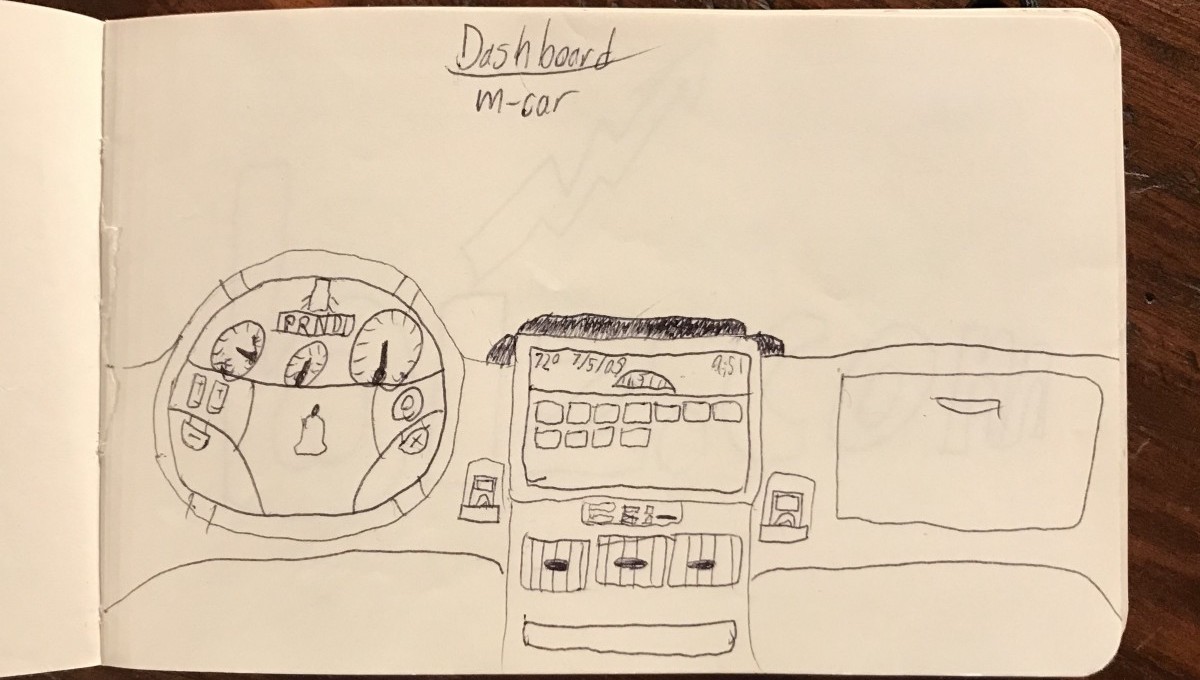 Dashboard
m-car
PRND
72° 7/5/09 9:51